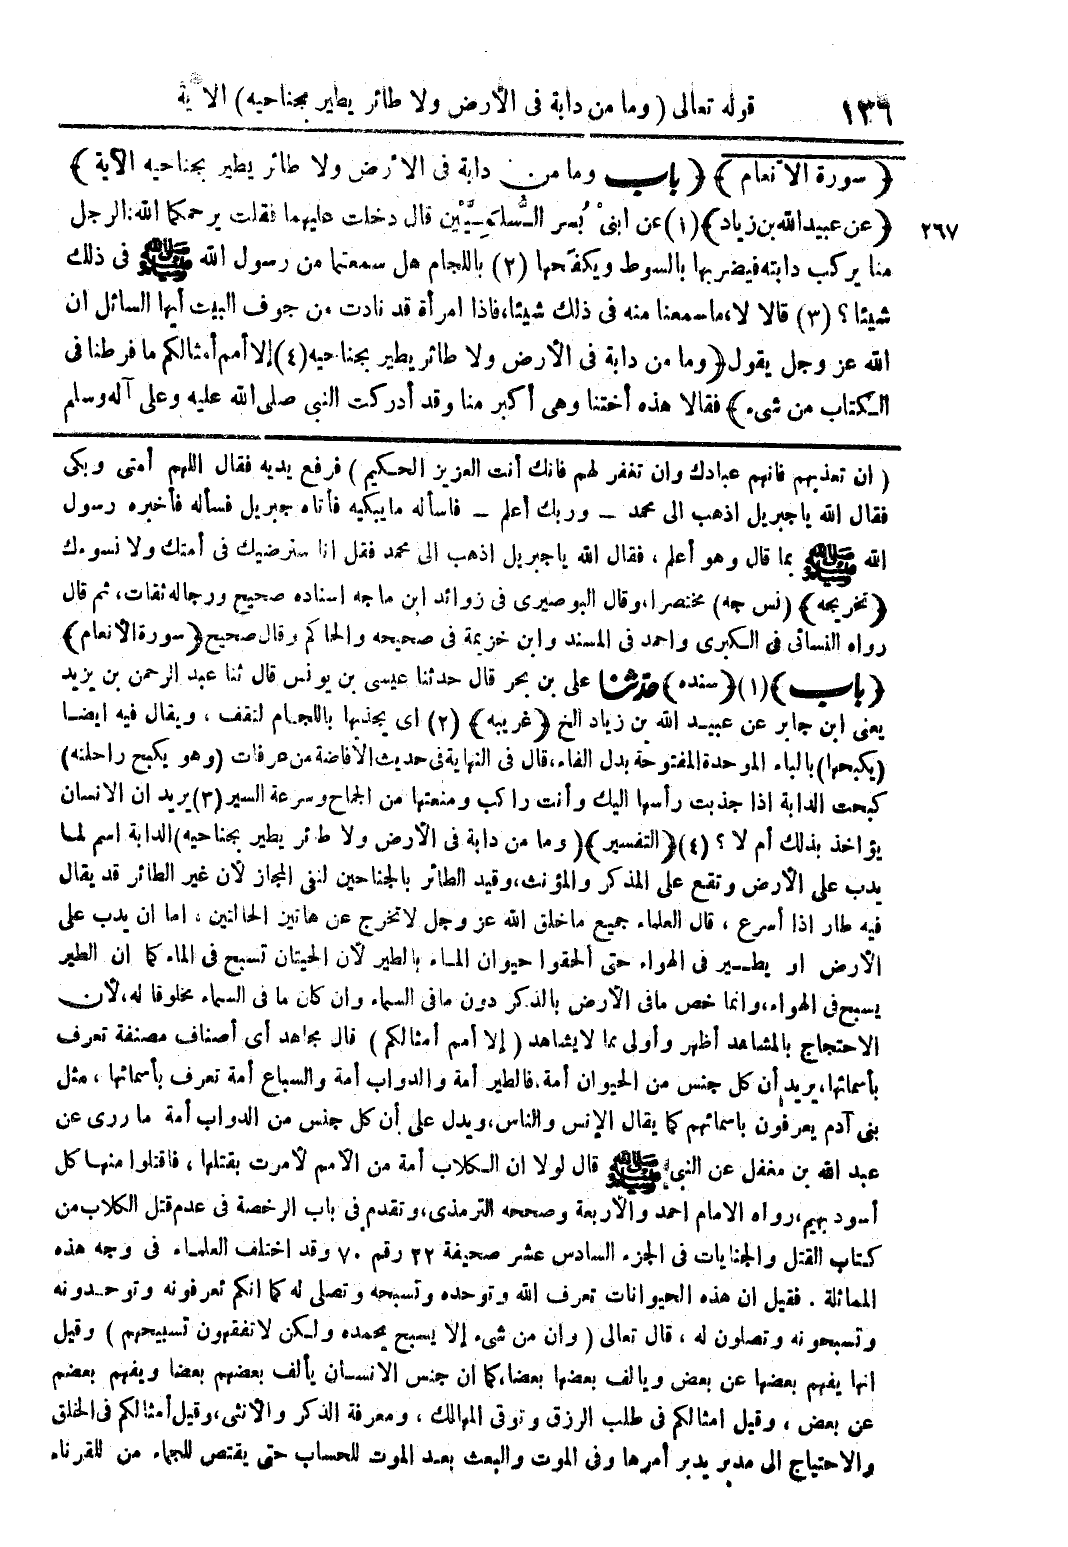 ١٣٦ قوله تعالى ( وما من دابة فى الأرض ولا طائر يطير بجناحيه ) الآية
﴿ سورة الأنعام ﴾ ﴿ باب وما من دابة فى الأرض ولا طائر يطير بجناحيه الآية ﴾
٢٦٧ ﴿ عن عبيد الله بن زياد ﴾ (١) عن ابنى بُسر السُّلَمِيَّيْن قال دخلت عليهما فقلت يرحمكما الله: الرجل
منا يركب دابته فيضربها بالسوط ويكفحها (٢) باللجام هل سمعتما من رسول الله ﷺ فى ذلك
شيئا؟ (٣) قالا لا، ماسمعنا منه فى ذلك شيئا، فاذا امرأة قد نادت من جوف البيت أيها السائل ان
الله عز وجل يقول ﴿ وما من دابة فى الأرض ولا طائر يطير بجناحيه (٤) إلا أمم أمثالكم ما فرطنا فى
الكتاب من شىء ﴾ فقالا هذه أختنا وهى أكبر منا وقد أدركت النبى صلى الله عليه وعلى آله وسلم
( ان تعذبهم فانهم عبادك وان تغفر لهم فانك أنت العزيز الحكيم ) فرفع يديه فقال اللهم أمتى وبكى
فقال الله ياجبريل اذهب الى محمد ــ وربك أعلم ــ فاسأله مايبكيه فأتاه جبريل فسأله فأخبره رسول
الله ﷺ بما قال وهو أعلم ، فقال الله ياجبريل اذهب الى محمد فقل انا سنرضيك فى أمتك ولا نسوءك
﴿ تخريجه ﴾ (نس جه) مختصرا، وقال البوصيرى فى زوائد ابن ماجه اسناده صحيح ورجاله ثقات، ثم قال
رواه النسائى فى الكبرى واحمد فى المسند وابن خزيمة فى صحيحه والحاكم وقال صحيح ﴿ سورة الأنعام ﴾
﴿ باب ﴾ (١) ﴿ سنده ﴾ حدثنا على بن بحر قال حدثنا عيسى بن يونس قال ثنا عبد الرحمن بن يزيد
يعنى ابن جابر عن عبيد الله بن زياد الخ ﴿ غريبه ﴾ (٢) اى يجذبها باللجام لتقف ، ويقال فيه ايضا
(يكبحها) بالباء الموحدة المفتوحة بدل الفاء، قال فى النهاية فى حديث الأفاضة من عرفات (وهو يكبح راحلته)
كبحت الدابة اذا جذبت رأسها اليك وأنت راكب ومنعتها من الجماح وسرعة السير (٣) يريد ان الانسان
يؤاخذ بذلك أم لا ؟ (٤) ﴿ التفسير ﴾ ( وما من دابة فى الأرض ولا طائر يطير بجناحيه) الدابة اسم لما
يدب على الأرض وتقع على المذكر والمؤنث، وقيد الطائر بالجناحين لنفى المجاز لأن غير الطائر قد يقال
فيه طار اذا أسرع ، قال العلماء جميع ماخلق الله عز وجل لاتخرج عن هاتين الحالتين ، اما ان يدب على
الأرض او يطير فى الهواء حتى ألحقوا حيوان الماء بالطير لأن الحيتان تسبح فى الماء كما ان الطير
يسبح فى الهواء، وانما خص مافى الأرض بالذكر دون مافى السماء وان كان ما فى السماء مخلوقا له، لأن
الاحتجاج بالمشاهد أظهر وأولى مما لايشاهد ( إلا أمم أمثالكم ) قال مجاهد أى أصناف مصنفة تعرف
بأسمائها، يريد أن كل جنس من الحيوان أمة. فالطير أمة والدواب أمة والسباع أمة تعرف بأسمائها ، مثل
بنى آدم يعرفون باسمائهم كما يقال الإنس والناس، ويدل على أن كل جنس من الدواب أمة ما روى عن
عبد الله بن مغفل عن النبى ﷺ قال لولا ان الكلاب أمة من الأمم لأمرت بقتلها ، فاقتلوا منها كل
أسود بهيم، رواه الامام احمد والأربعة وصححه الترمذى، وتقدم فى باب الرخصة فى عدم قتل الكلاب من
كتاب القتل والجنايات فى الجزء السادس عشر صحيفة ٢٢ رقم ٧٠ وقد اختلف العلماء فى وجه هذه
المماثلة . فقيل ان هذه الحيوانات تعرف الله وتوحده وتسبحه وتصلى له كما انكم تعرفونه وتوحدونه
وتسبحونه وتصلون له ، قال تعالى ( وان من شىء إلا يسبح بحمده ولكن لاتفقهون تسبيحهم ) وقيل
انها يفهم بعضها عن بعض ويالف بعضها بعضا، كما ان جنس الانسان يألف بعضهم بعضا ويفهم بعضهم
عن بعض ، وقيل امثالكم فى طلب الرزق وتوقى المهالك ، ومعرفة الذكر والأنثى، وقيل أمثالكم فى الخلق
والاحتياج الى مدبر يدبر أمرها وفى الموت والبعث بعد الموت للحساب حتى يقتص للجماء من القرناء